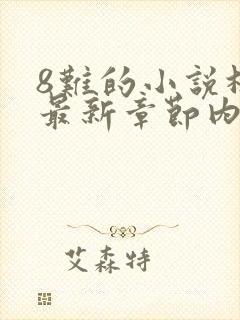 8難的小說
最新章節內
艾森特